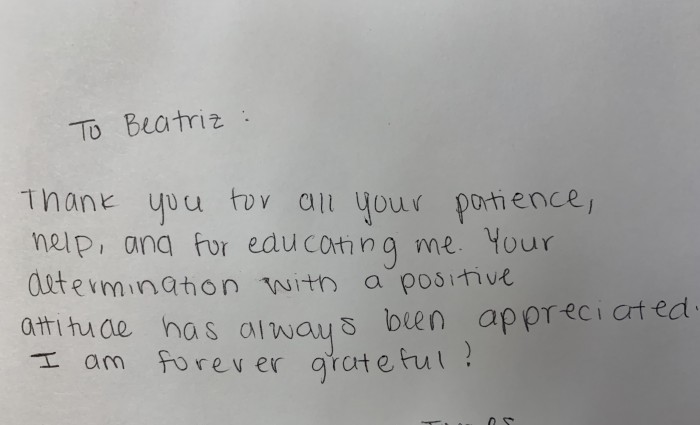 To Beatriz :
Thank you for all your patience,
help, and for educating me. Your
determination with a positive
attitude has always been appreciated.
I am forever grateful!